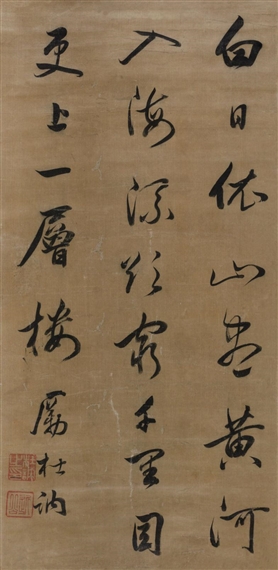 白日依山盡黃河
入海流欲窮千里目
更上一層樓 厲杜訥